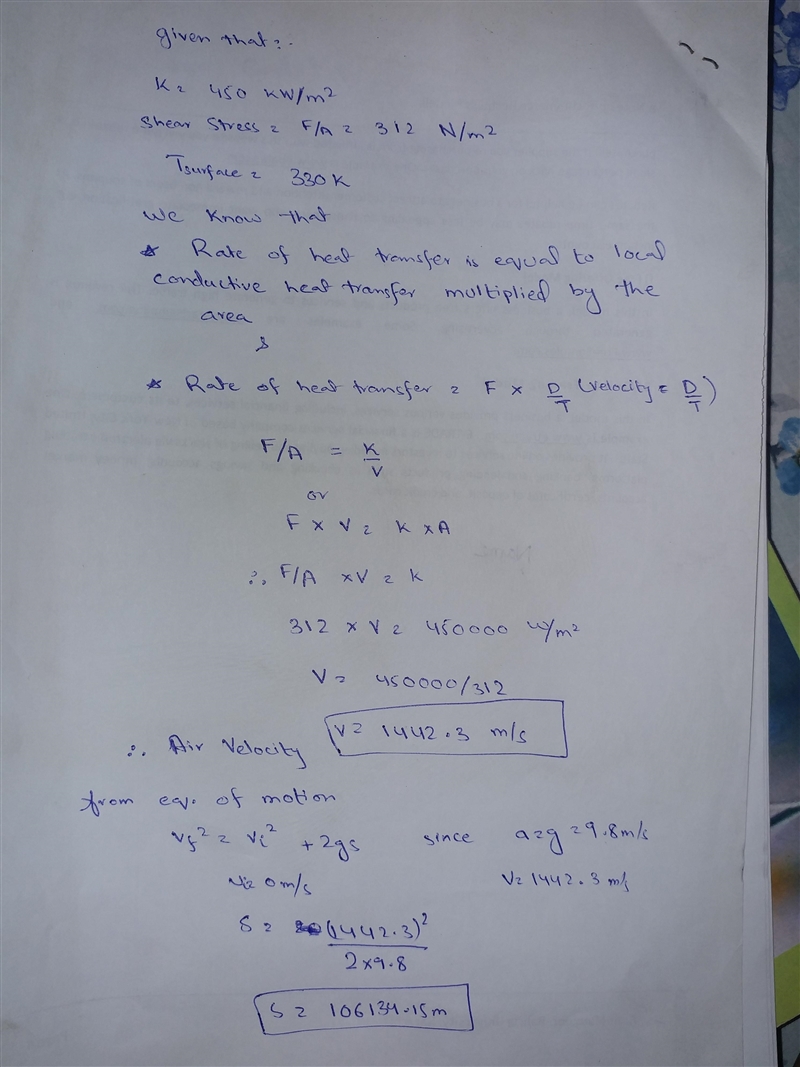 given that :-
K = 450 KW/m²
Shear Stress = F/A = 312 N/m²
Tsurface = 330 K
We Know that
* Rate of heat transfer is equal to local
conductive heat transfer multiplied by the
area
&
* Rate of heat transfer = F × D/T (Velocity = D/T)
F/A = K/V
or
F × V = K × A
∴ F/A × V = K
312 × V = 450000 W/m²
V = 450000/312
∴ Air Velocity V = 1442.3 m/s
from eq. of motion
Vf² = Vi² + 2gs since a=g=9.8m/s
Vi= 0 m/s V= 1442.3 m/s
S = (1442.3)² / 2×9.8
S = 106134.15m